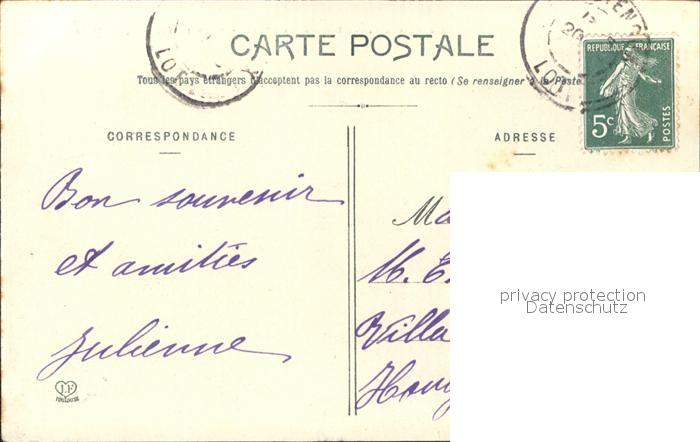 CARTE POSTALE
Tous les pays étrangers n'acceptent pas la correspondance au recto (Se renseigner à la Poste
REPUBLIQUE FRANÇAISE
5c
POSTES
CORRESPONDANCE
ADRESSE
Bon souvenir
et amitiés
Julienne
M. E.
Villa
privacy protection
Datenschutz
L.F
TOULOUSE